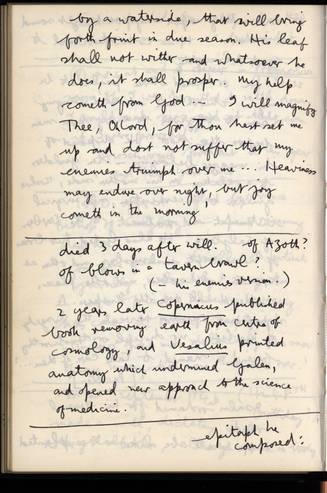 by a waterside, that will bring
forth fruit in due season. His leaf
shall not wither and whatsoever he
does, it shall prosper. My help
cometh from God ... I will magnify
Thee, O Lord, for thou hast set me
up and dost not suffer that my
enemies triumph over me ... Heaviness
may endure over night, but joy
cometh in the morning!
died 3 days after will. of Azoth?
of blows in a tavern brawl?
(- his enemies version.)
2 years later Copernicus published
book removing earth from centre of
cosmology, and Vesalius printed
anatomy which undermined Galen,
and opened new approach to the science
of medicine.
epitaph he
composed: